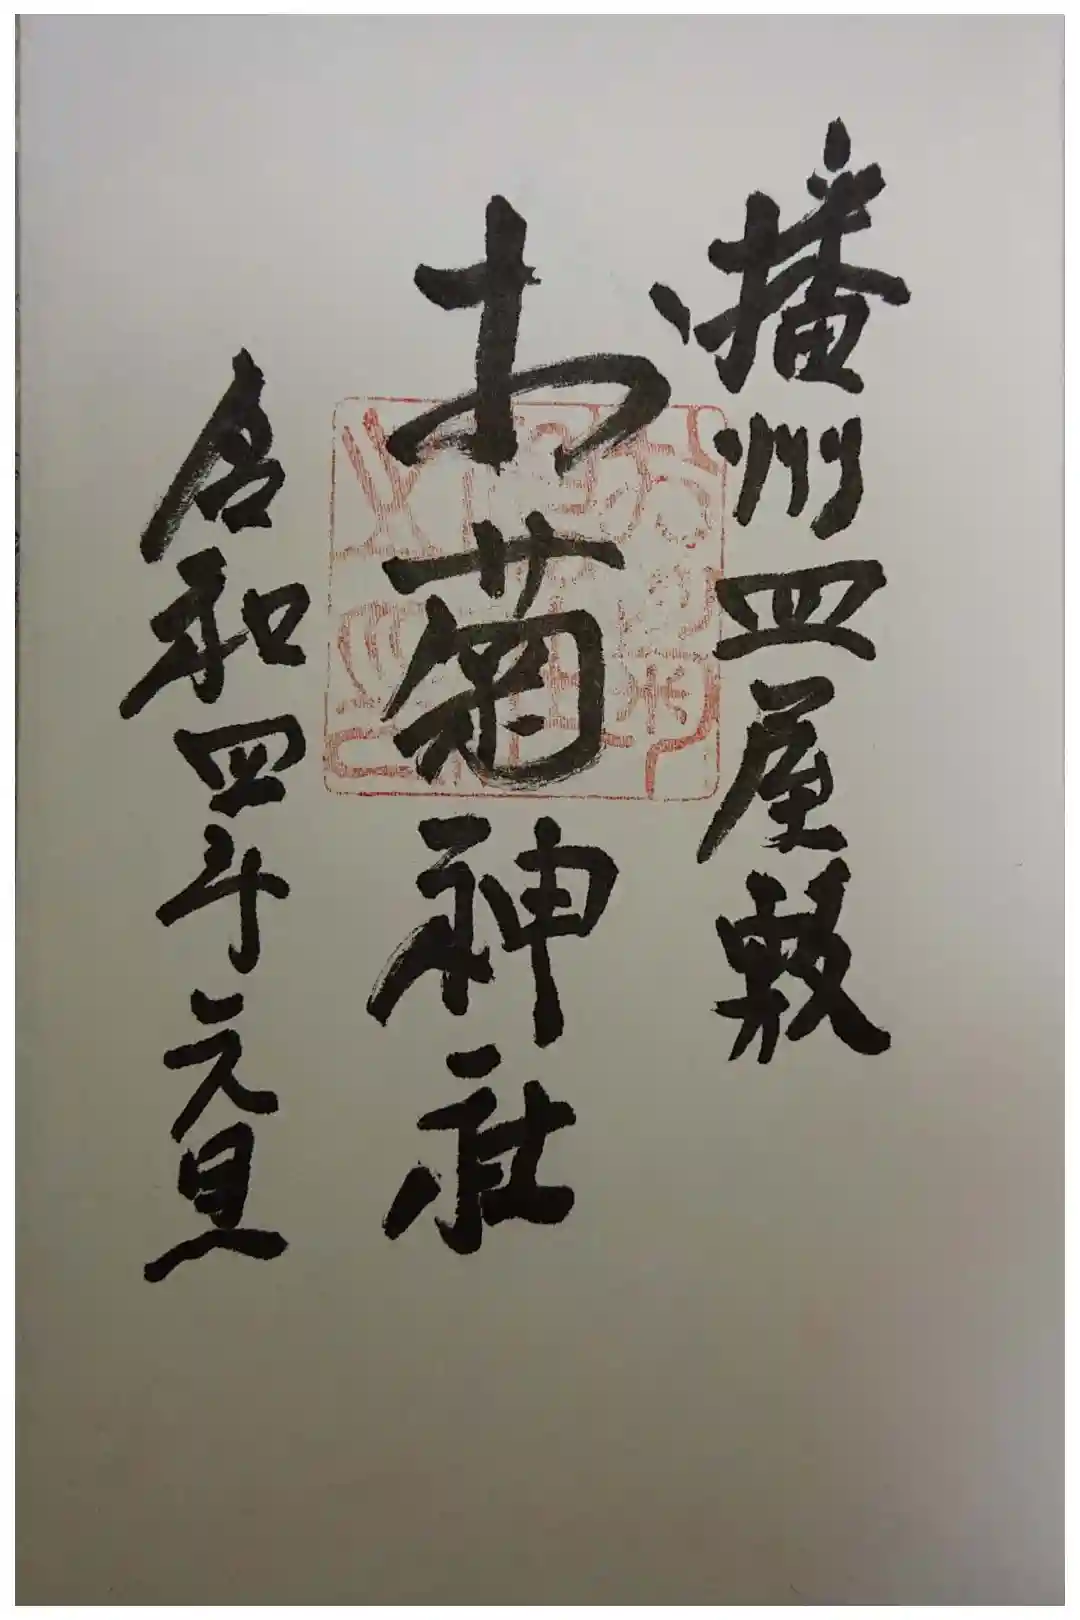 播州皿屋敷
お菊神社
令和四年元旦